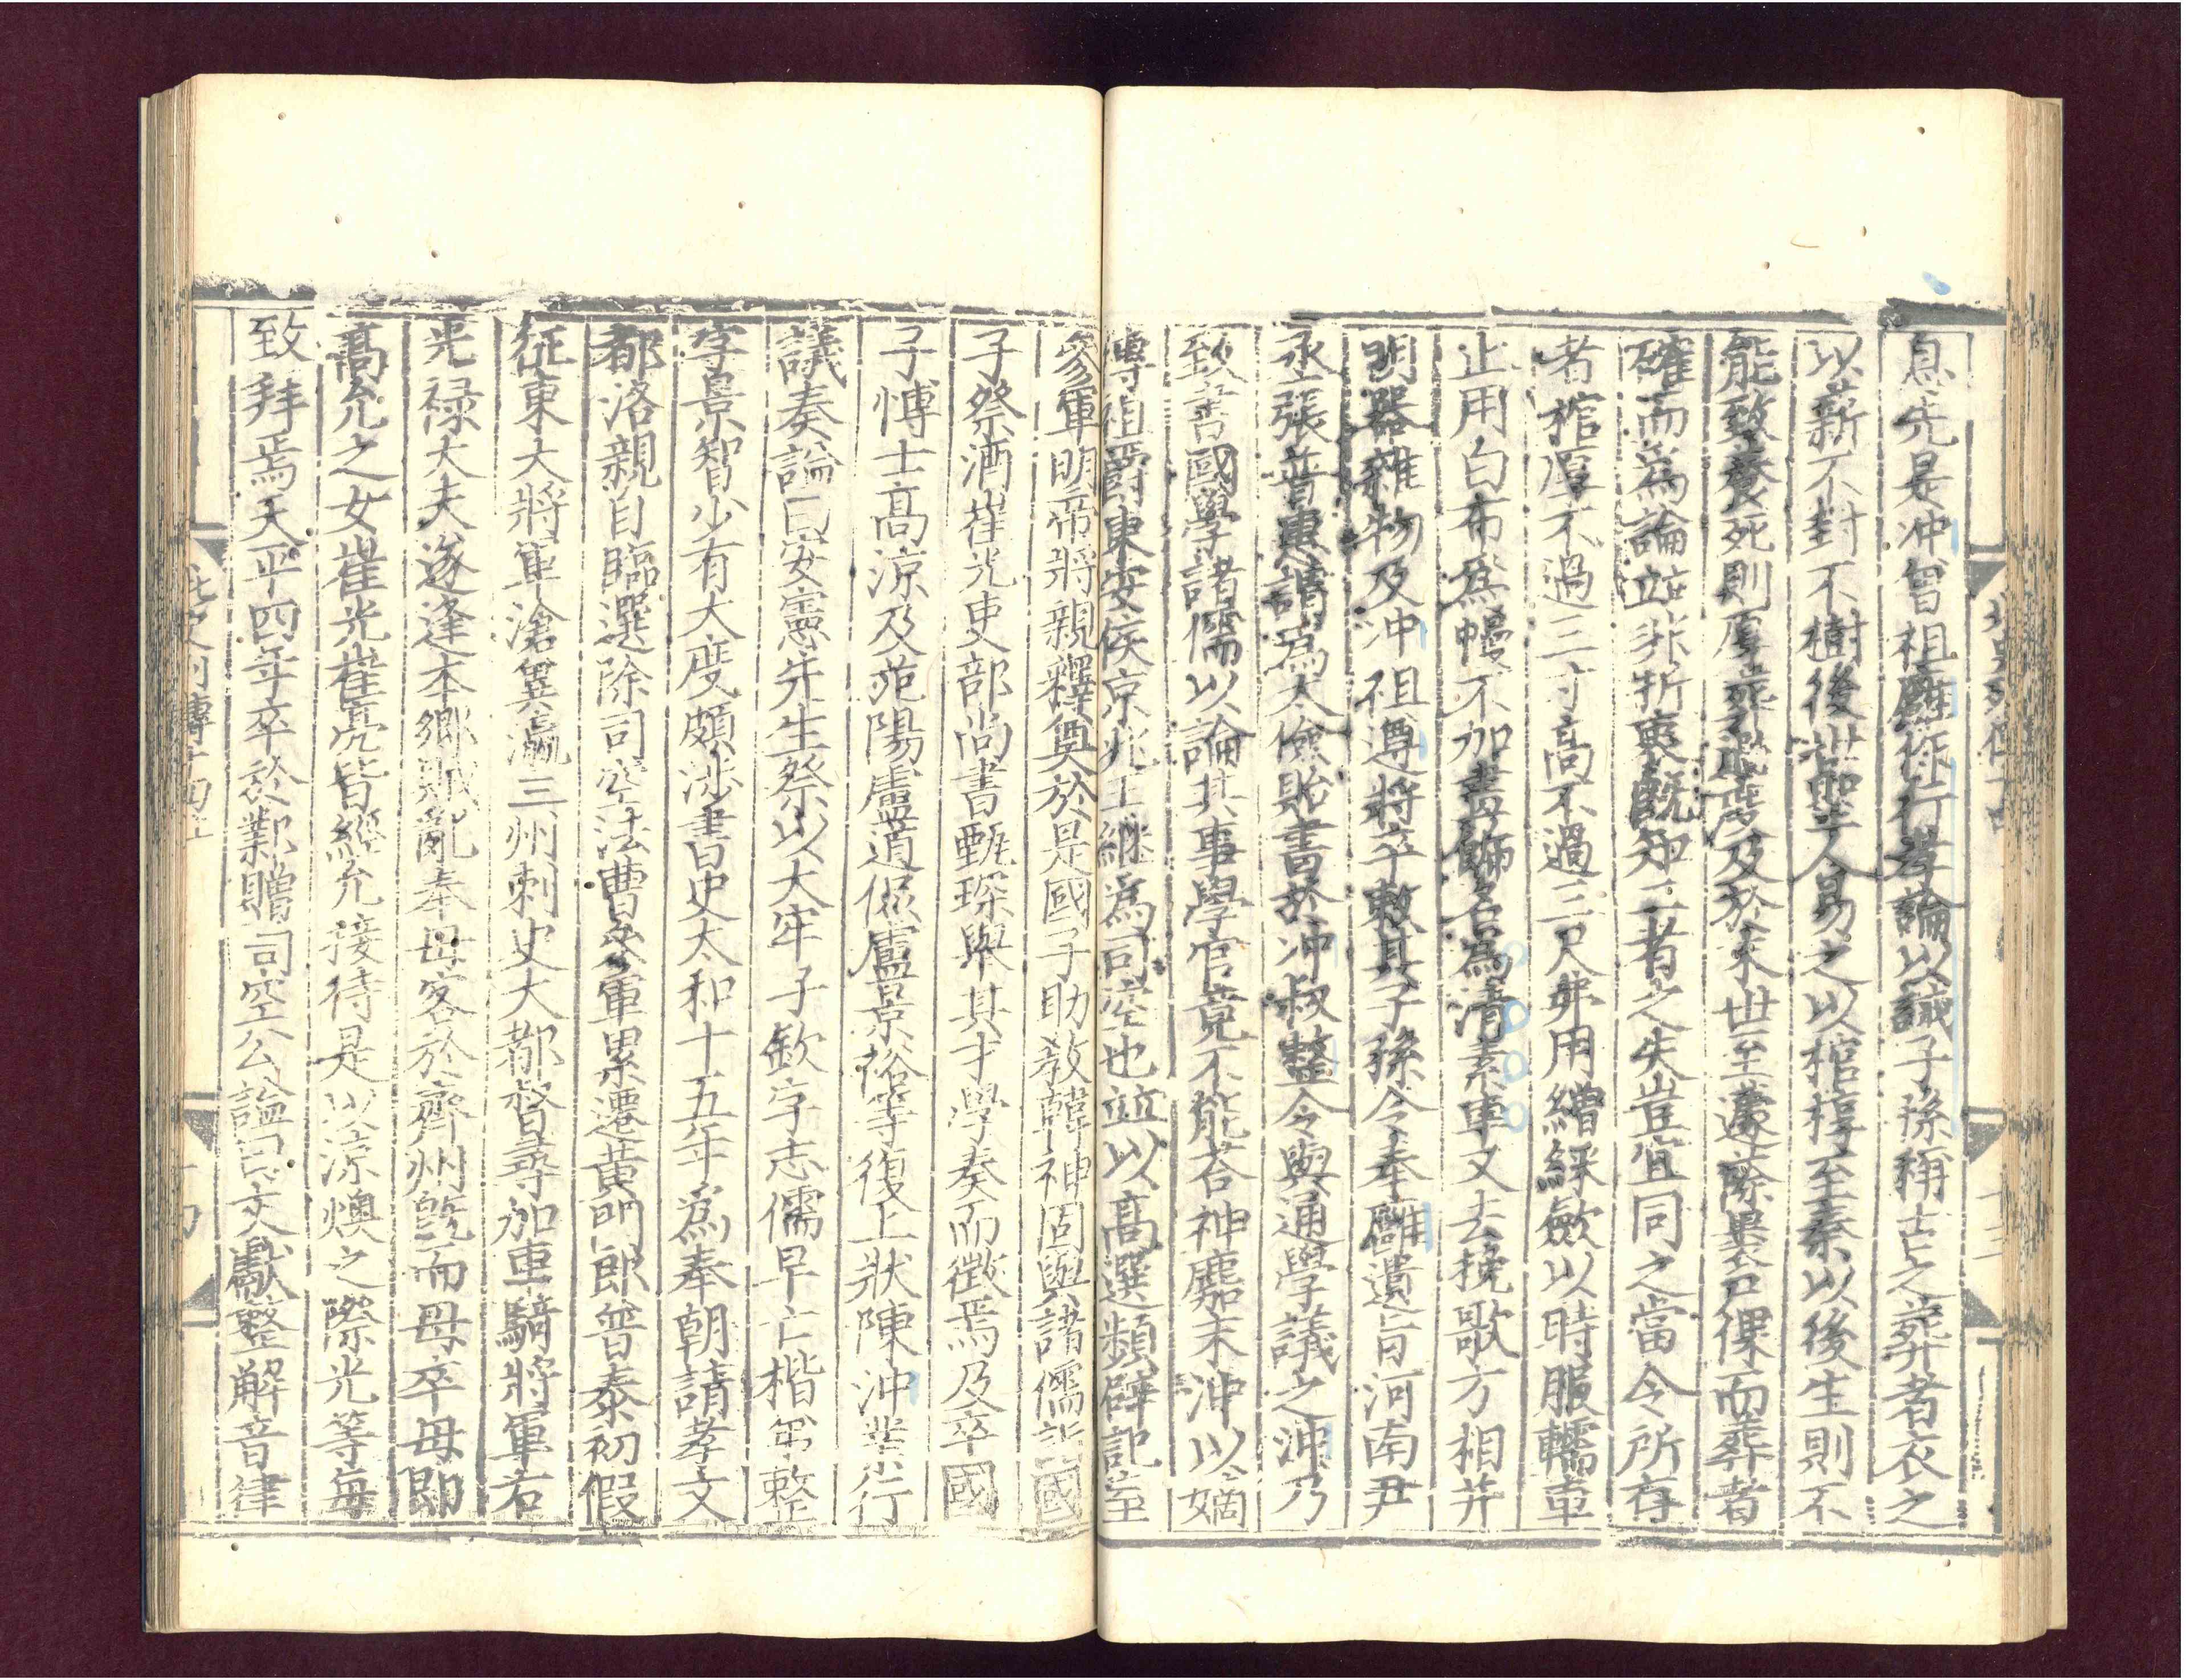 息先是冲曽祖雕作行孝論以誡子孫稱古之葬者衣之
以薪不封不樹後世聖人易之以棺椁至秦以後生則不
能致養死則厚葬過度及於末世至蘧蒢褁尸倮而葬者
確而爲論竝非折衷旣知二者之失豈宜同之當令所存
者棺厚不過三寸高不過三尺弗用繒綵斂以時服轜車
止用白布爲幔不加畫飾名爲清素車又去挽歌方相并
明器雜物及冲祖遵將卒敕其子孫令奉雕遺旨河南尹
丞張普惠謂爲太儉貽書於冲叔整令與通學議之冲乃
致書國學諸儒以論其事學官竟不能荅神龜末冲以嫡
傳祖爵東安侯京兆王継爲司空也竝以高選頻辟記室
參軍明帝將親釋奠於是國子助敎韓神固與諸儒詣國
子祭酒崔光吏部尚書甄琛與其才學奏而徵焉及卒國
子愽士高涼及范陽盧道侃盧景裕等復上狀陳沖業行
議奏謚曰安憲先生祭以大牢子欽字志儒早亡楷弟整
字景智少有大度頗渉書史太和十五年爲奉朝請孝文
都洛親自臨選除司空法曹參軍累遷黃門郎普泰初假
征東大將軍滄冀瀛三州刺史大都督尋加車騎將軍右
光禄大夫遂逢本鄉賊亂奉母客於齊州旣而母卒母即
高允之女崔光崔亮皆經允接待是以涼燠之際光等每
致拜焉天平四年卒於鄴贈司空公謚曰文獻整解音律
北史列傳十四